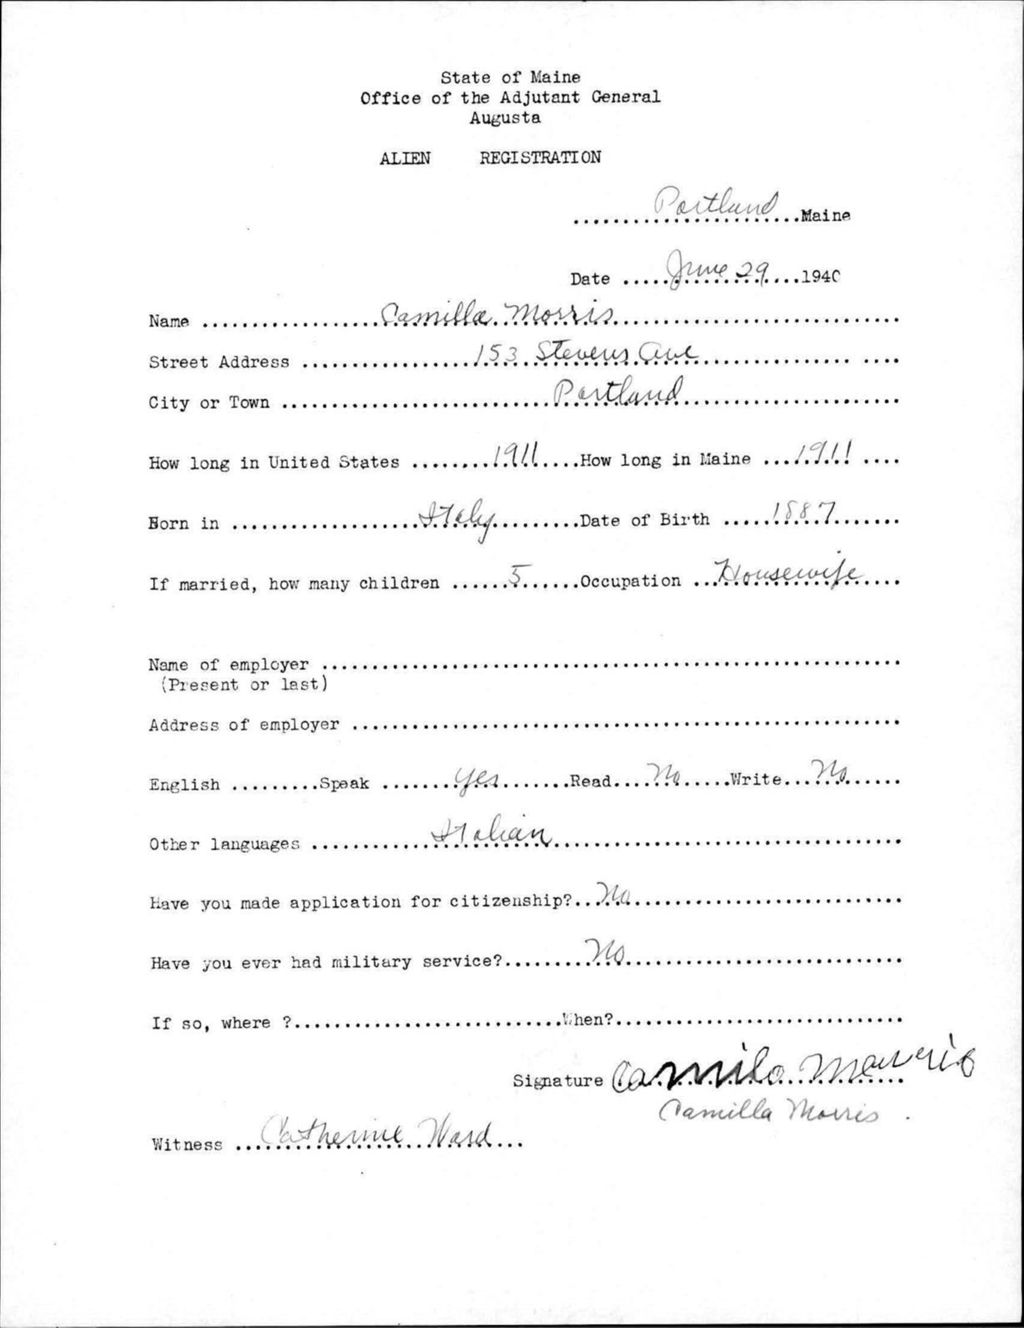 State of Maine
Office of the Adjutant General
Augusta
ALIEN REGISTRATION
Portland Maine
Date June 29 1940
Name Camilla Morris
Street Address 153 Stevens Ave
City or Town Portland
How long in United States 1911 How long in Maine 1911
Born in Italy Date of Birth 1887
If married, how many children 5 Occupation Housewife
Name of employer
(Present or last)
Address of employer
English Speak Yes Read No Write No
Other languages Italian
Have you made application for citizenship? No
Have you ever had military service? No
If so, where ? When?
Signature Camilo
Camilla Morris
Witness Catherine Ward